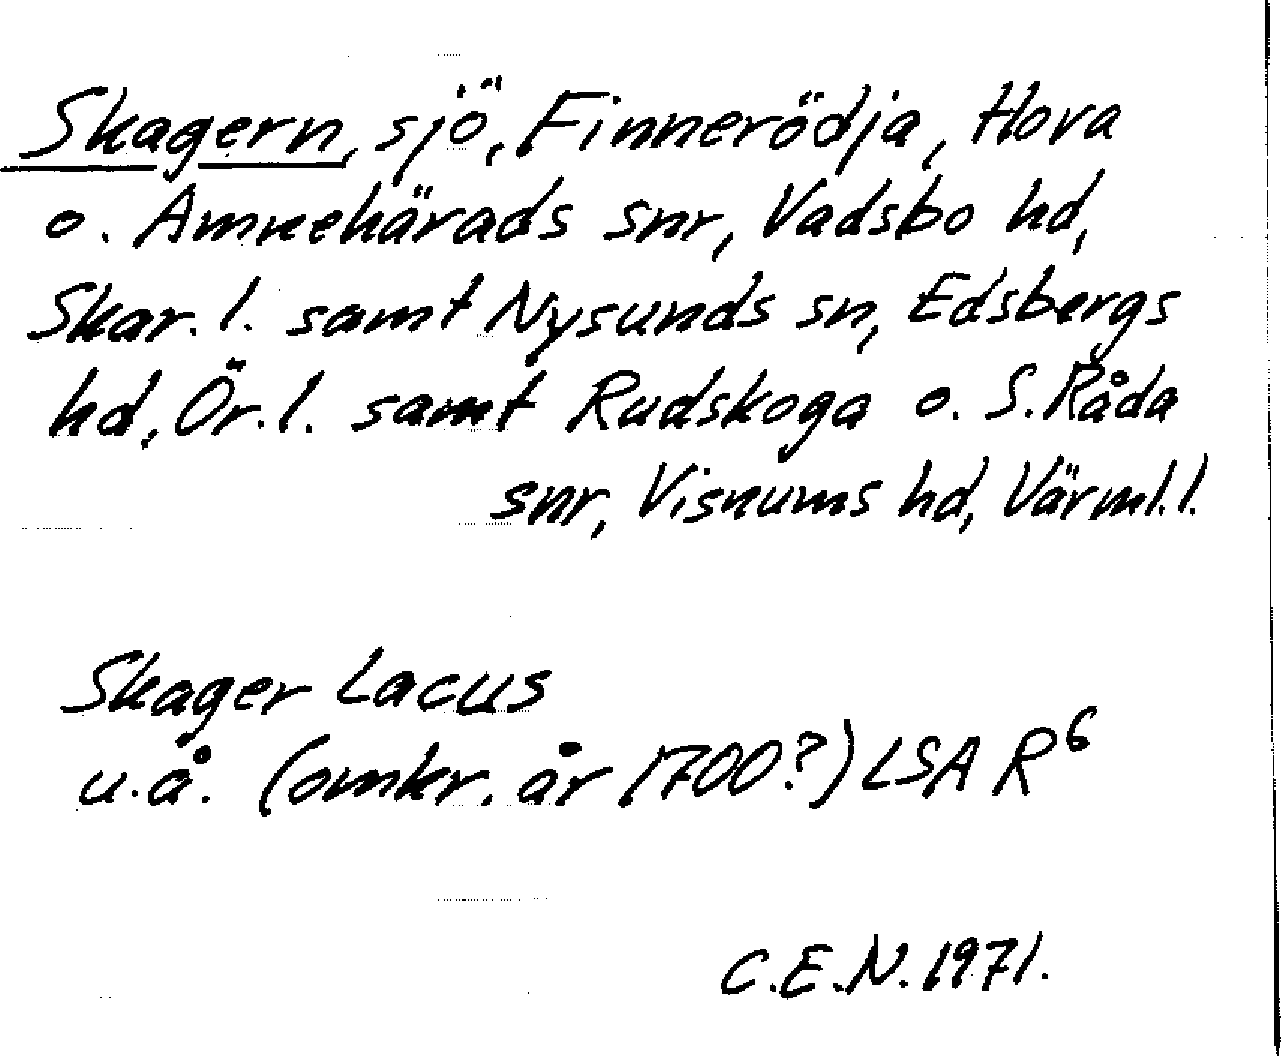 Skagern, sjö, Finnerödja, Hova
o. Amnehärads snr, Vadsbo hd,
Skar. l. samt Nysunds sn, Edsbergs
hd, Ör. l. samt Rudskoga o. S. Råda
snr, Visnums hd, Värml. l.
Skager Lacus
u.å. (omkr. år 1700?) LSA R⁶
C.E.N. 1971.